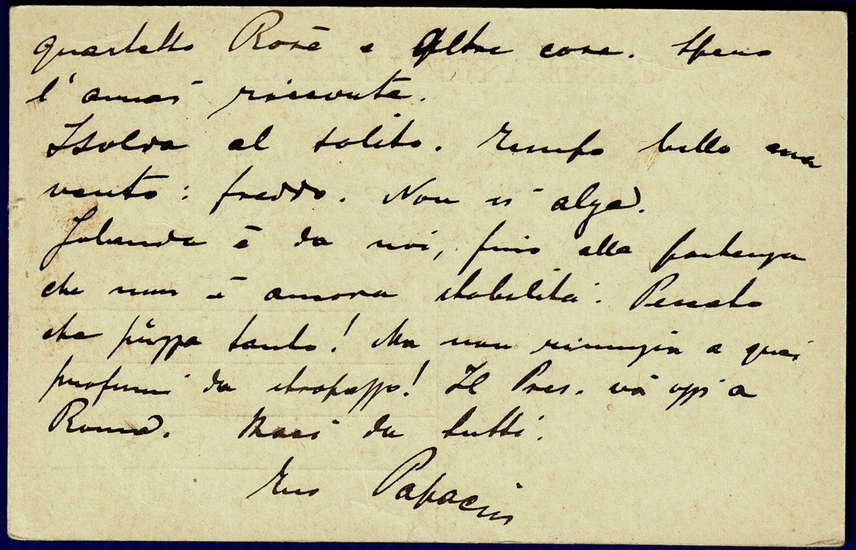 quartetto Rosè e altre cose. Spero
l'avrai ricevuta.
Isolda al solito. Tempo bello ma
vento: freddo. Non si alza.
Jolanda è da noi, fino alla partenza
che non è ancora stabilita. Peccato
che puzza tanto! Ma non rinunzia a quei
profumi da strapazzo! Il Pres. và oggi a
Roma. Baci da tutti.
Tuo Papacin